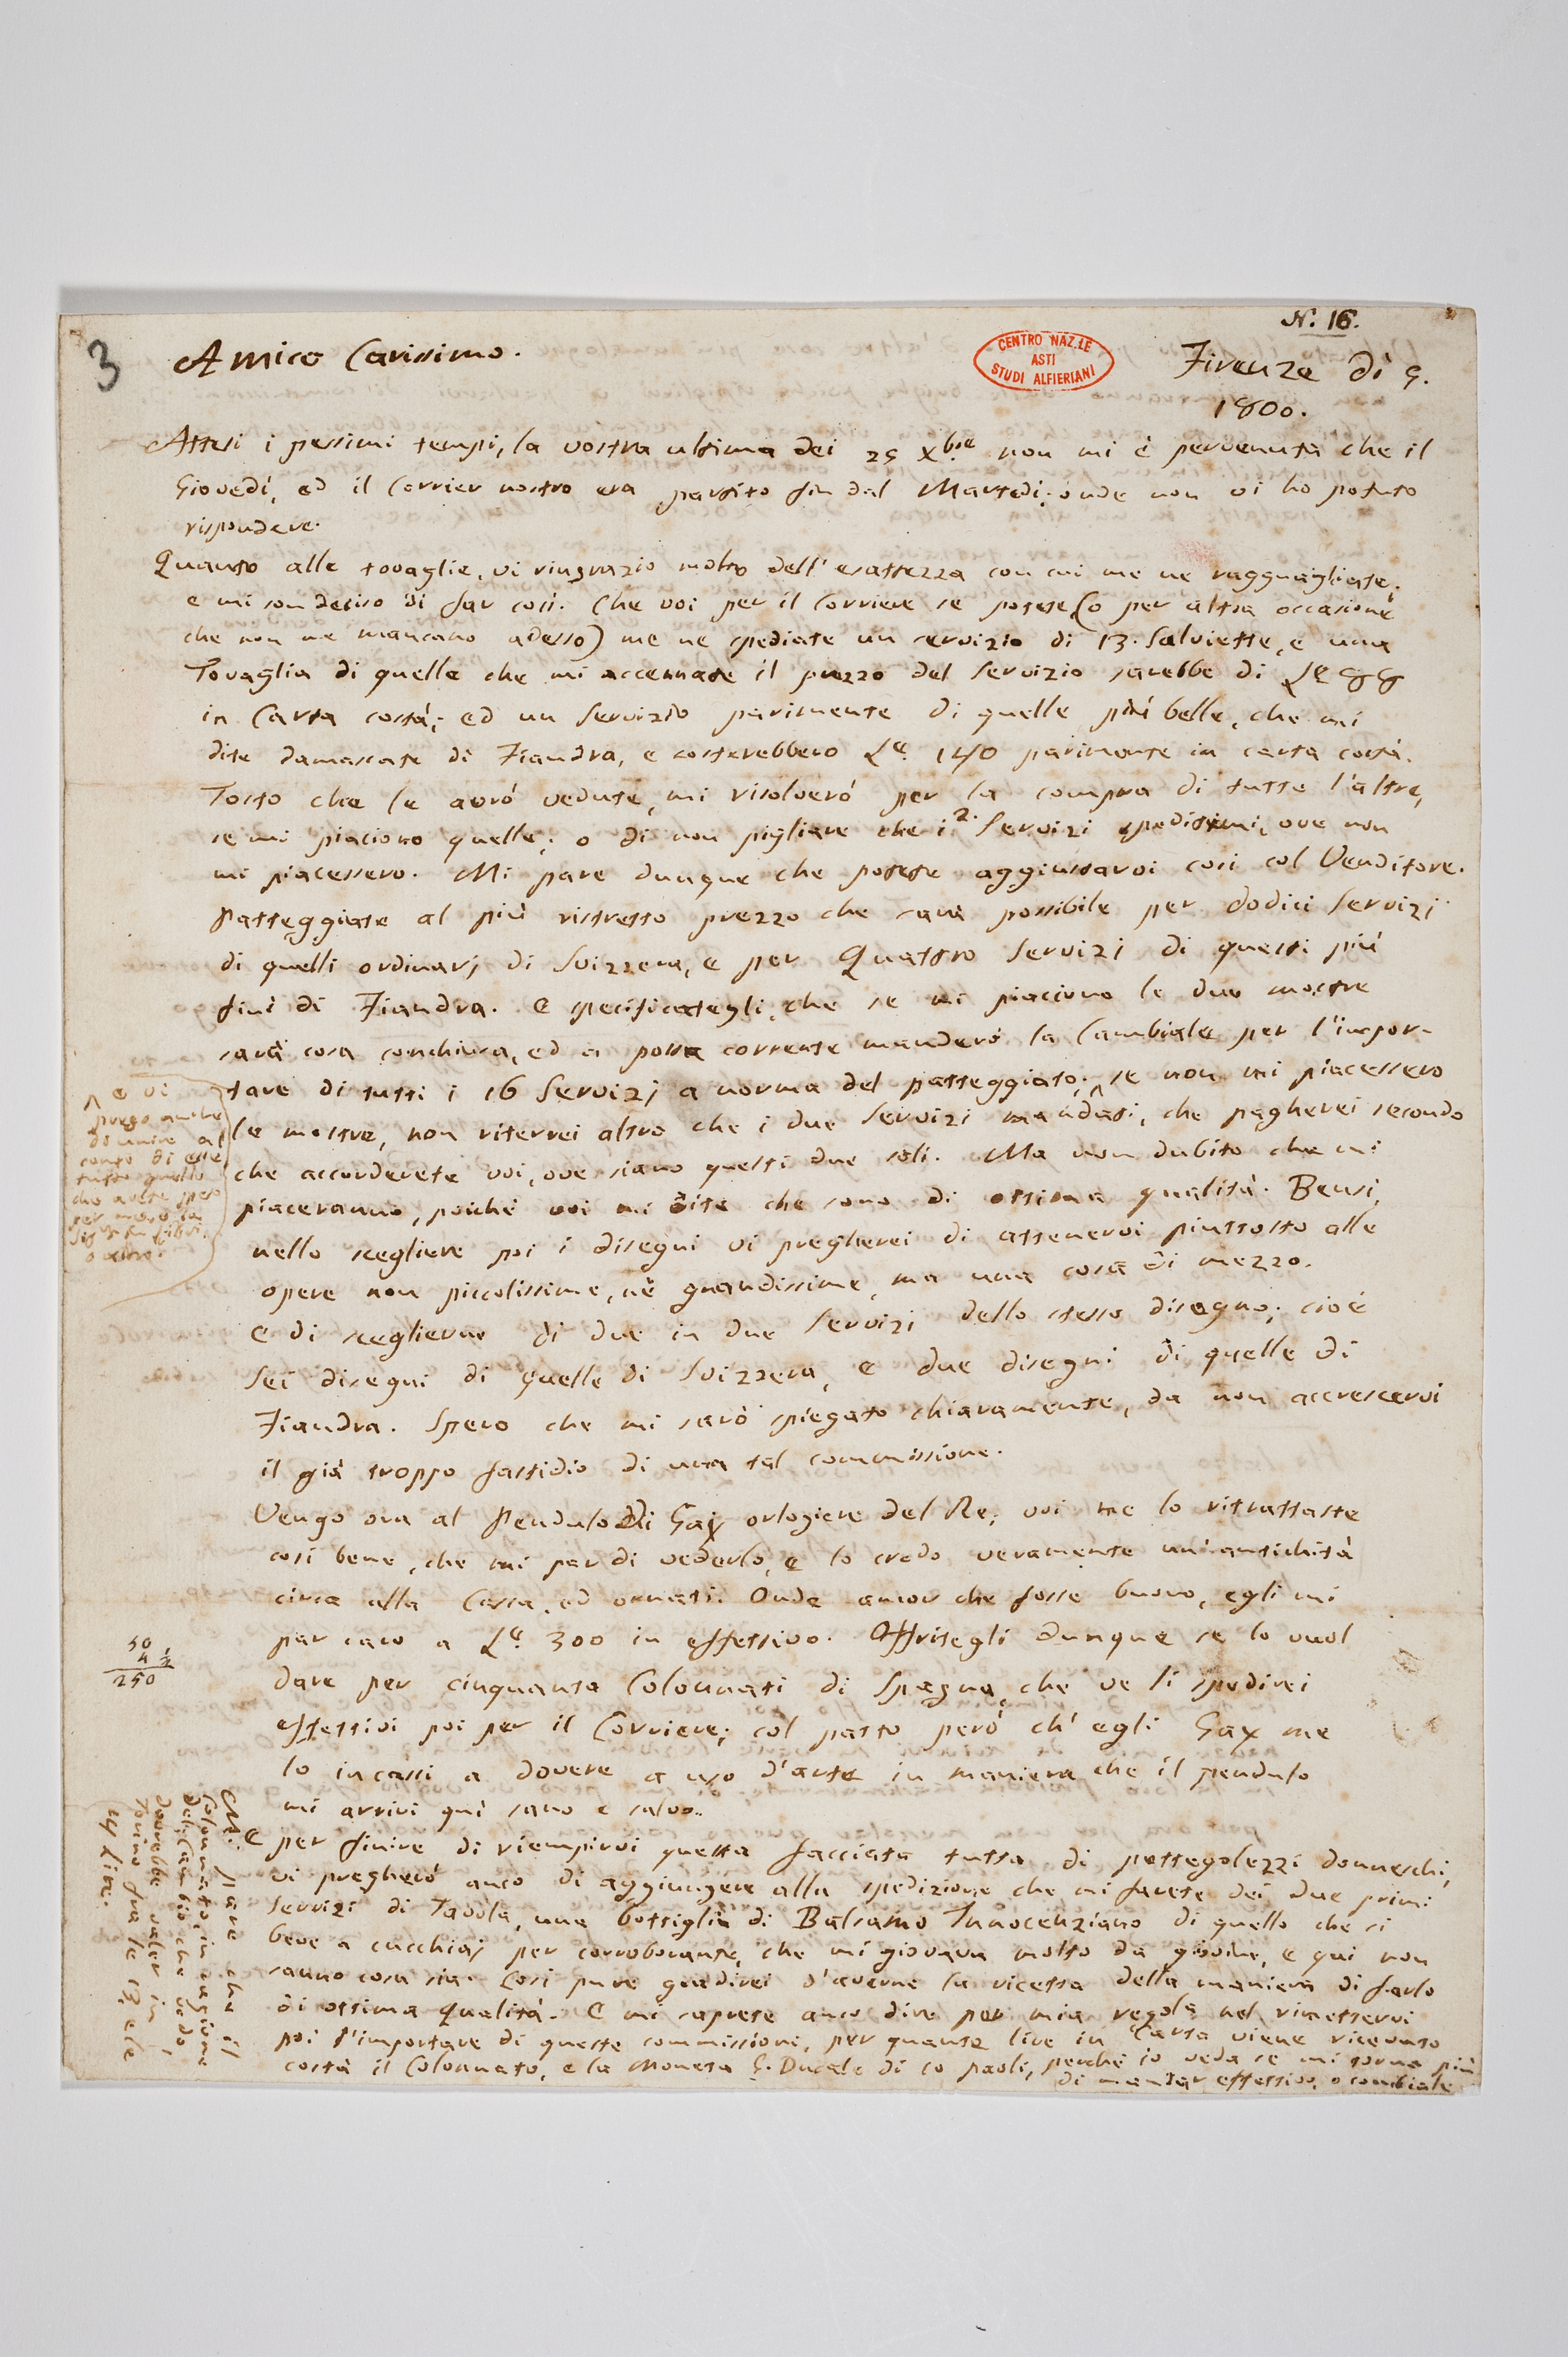 N.: 16.
3
Amico Carissimo.
CENTRO NAZ.LE
ASTI
STUDI ALFIERIANI
Firenze dì 5.
1800.
Attesi i pessimi tempi, la vostra ultima dei 25 Xbre non mi è pervenuta che il
Giovedì, ed il Corrier nostro era partito fin dal Martedì; onde non vi ho potuto
rispondere.
Quanto alle tovaglie, vi ringrazio molto dell'esattezza con cui me ne ragguagliate.
e mi son deciso di far così. Che voi per il Corriere se potete (o per altra occasione
che non ne mancano adesso) me ne spediate un servizio di 13. Salviette, e una
Tovaglia di quelle che mi accennate il prezzo del Servizio sarebbe di Le 88
in Carta costà; ed un Servizio parimente di quelle più belle, che mi
dite damascate di Fiandra, e costerebbero Le. 140 parimente in carta costà.
Tosto che le avrò vedute, mi risolverò per la compra di tutte l'altre,
se mi piaciono quelle; o di non pigliare che i 2. Servizi speditimi, ove non
mi piacessero. Mi pare dunque che potete aggiustarvi così col Venditore.
Patteggiate al più ristretto prezzo che sarà possibile per dodici Servizi
di quelli ordinarj di Svizzera, e per Quattro Servizi di questi più
fini di Fiandra. E specificategli, che se mi piaciono le due mostre
sarà cosa conchiusa, ed a posta corrente manderò la Cambiale per l'impor-
tare di tutti i 16 Servizj a norma del patteggiato; ^ se non mi piacessero
^ e vi
prego anche
di unire al
conto di esse
tutto quello
che avete speso
per me o la
Sig.ra in libri,
o altro.
le mostre, non riterrei altro che i due Servizi mandati, che pagherei secondo
che accorderete voi, ove siano questi due soli. Ma non dubito che mi
piaceranno, poiché voi mi dite che sono di ottima qualità. Bensì,
nello scegliere poi i disegni vi pregherei di attenervi piuttosto alle
opere non piccolissime, nè grandissime, ma una cosa di mezzo.
E di sceglierne di due in due Servizi dello stesso disegno; cioè
Sei disegni di quelle di Svizzera, e due disegni di quelle di
Fiandra. Spero che mi sarò spiegato chiaramente, da non accrescervi
il già troppo fastidio di una tal commissione.
Vengo ora al Pendulo di Gax orlogiere del Re; voi me lo ritrattaste
così bene, che mi par di vederlo, e lo credo veramente un'antichità
circa alla Cassa, ed ornati. Onde ancor che fosse buono, egli mi
par caro a Le. 300 in effettivo. Offritegli dunque se lo vuol
50
4 1/2
250
dare per cinquanta Colonnati di Spagna, che ve li spedirei
effettivi poi per il Corriere; col patto però ch'egli Gax me
lo incassi a dovere a uso d'arte in maniera che il pendulo
mi arrivi quì sano e salvo.
E per finire di riempirvi questa facciata tutta di pettegolezzi donneschi,
vi pregherò anco di aggiungere alla spedizione che mi farete dei due primi
Servizi di Tavola, una bottiglia di Balsamo Innocenziano di quello che si
beve a cucchiaj per corroborante, che mi giovava molto da giovine, e qui non
sanno cosa sia. Così pure gradirei d'averne la ricetta della maniera di farlo
di ottima qualità. E mi saprete anco dire per mia regola nel rimettervi
poi l'importare di queste commissioni, per quante lire in Carta viene ricevuto
costà il Colonnato, e la Moneta di Ducale di 10 paoli, perché io veda se mi torna più
di mandar effettivo, o cambiale
Mi pare che il
Colonnato in ragione
del Cambio che vedo
dovrebbe valer in
Torino fra le 13, e le
14 Lire.